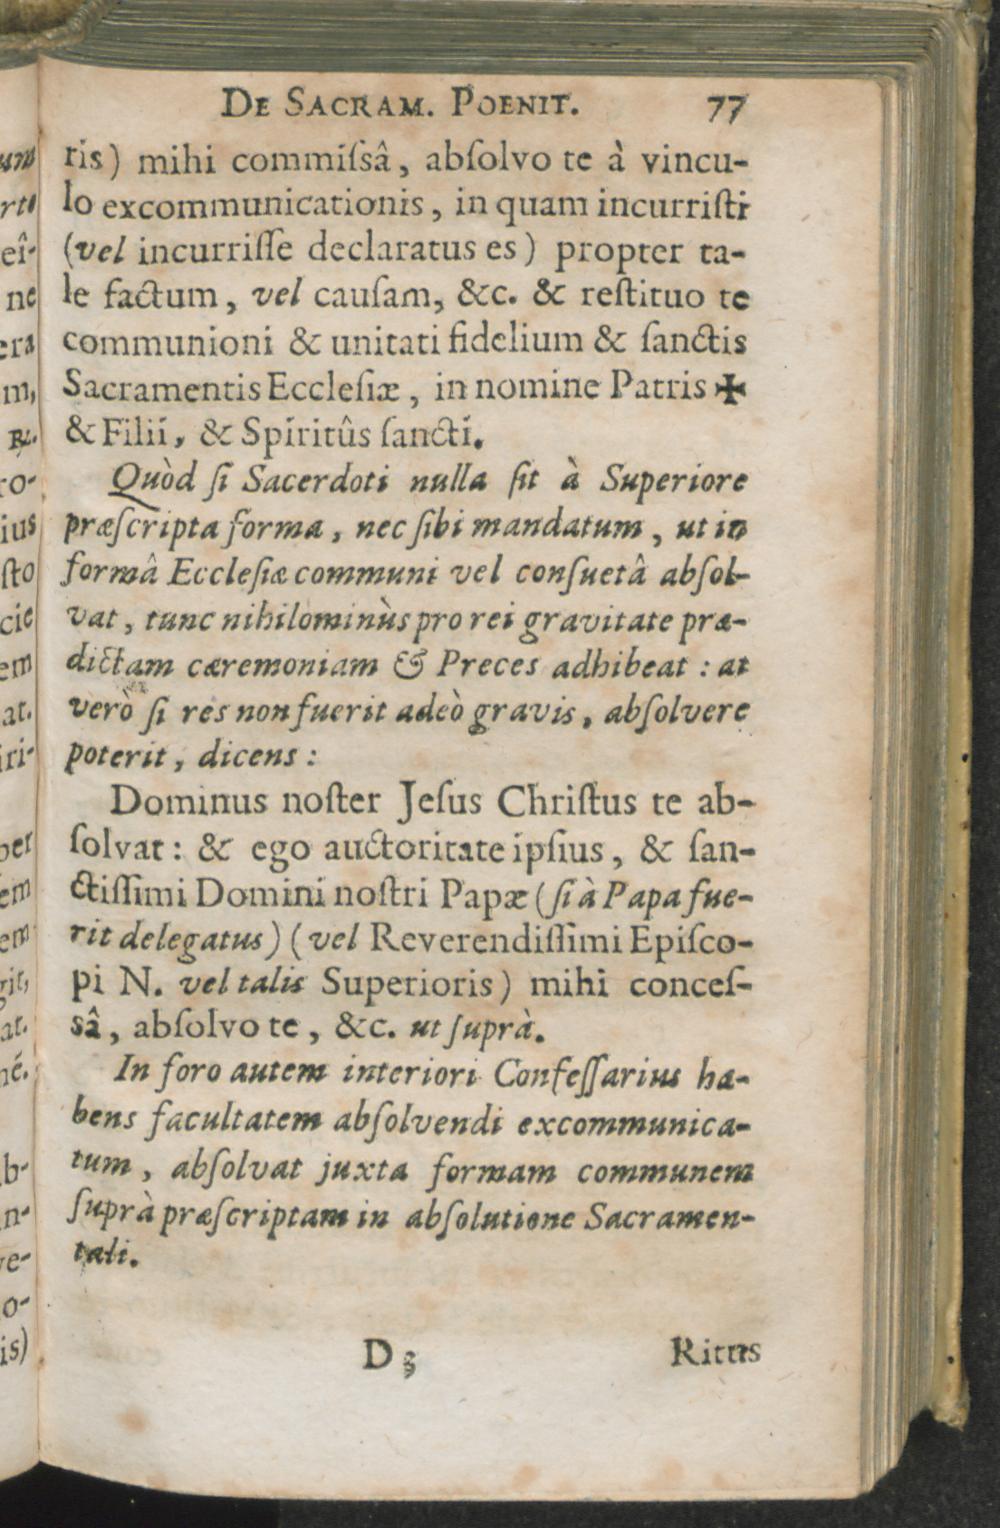 De Sacram. Poenit. 77
ris) mihi commiſsâ, abſolvo te à vincu-
lo excommunicationis, in quam incurriſti
(vel incurriſſe declaratus es) propter ta-
le factum, vel cauſam, &c. & reſtituo te
communioni & unitati fidelium & ſanctis
Sacramentis Eccleſiæ, in nomine Patris ✠
& Filii, & Spiritûs ſancti.
Quòd ſi Sacerdoti nulla ſit à Superiore
præſcripta forma, nec ſibi mandatum, ut in
formâ Eccleſiæ communi vel conſuetâ abſol-
vat, tunc nihilominùs pro rei gravitate præ-
dictam cæremoniam & Preces adhibeat: at
verò ſi res non fuerit adeò gravis, abſolvere
poterit, dicens:
Dominus noſter Jeſus Chriſtus te ab-
ſolvat: & ego auctoritate ipſius, & ſan-
ctiſſimi Domini noſtri Papæ (ſi à Papa fue-
rit delegatus) (vel Reverendiſſimi Epiſco-
pi N. vel talis Superioris) mihi conceſ-
sâ, abſolvo te, &c. ut ſuprà.
In foro autem interiori Confeſſarius ha-
bens facultatem abſolvendi excommunica-
tum, abſolvat juxta formam communem
ſuprà præſcriptam in abſolutione Sacramen-
tali.
D 3 Ritus